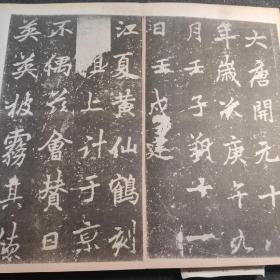 大唐開元十八
年歲次庚午九
月壬子朔十一
日壬戌建
江夏黄仙鶴刻
上計于京
不偶兹會贊曰
英英披霧其德